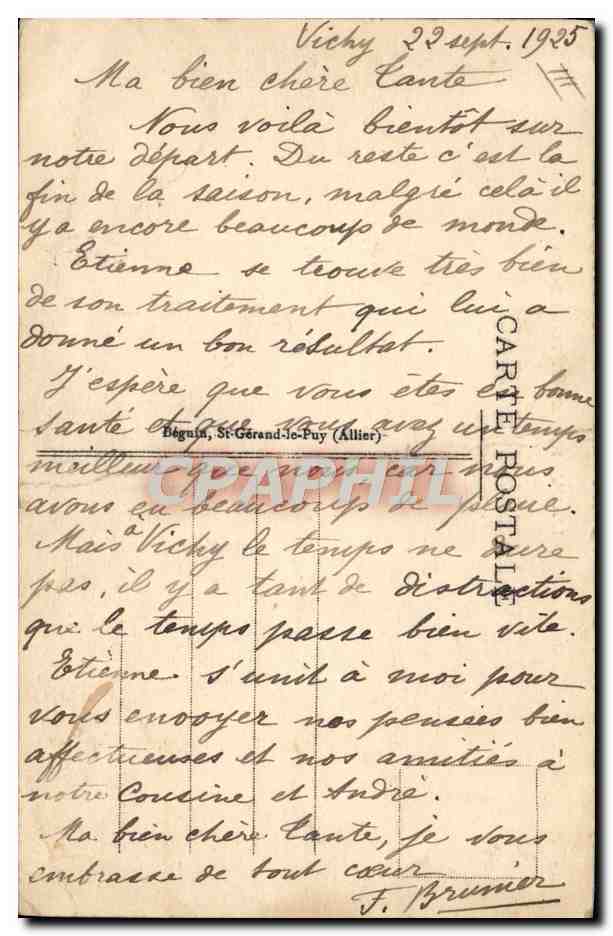 Vichy 22 sept. 1925
Ma bien chère Tante
Nous voilà bientôt sur
notre départ. Du reste c'est la
fin de la saison, malgré celà il
y a encore beaucoup de monde.
Etienne se trouve très bien
de son traitement qui lui a
donné un bon résultat.
J'espère que vous êtes en bonne
santé et que vous avez un temps
meilleur que nous car nous
avons eu beaucoup de pluie.
Mais à Vichy le temps ne dure
pas, il y a tant de distractions
que le temps passe bien vite.
Etienne s'unit à moi pour
vous envoyer nos pensées bien
affectueuses et nos amitiés à
notre Cousine et André.
Ma bien chère Tante, je vous
embrasse de tout cœur
F. Brunier
Béguin, St-Gérand-le-Puy (Allier)
CARTE POSTALE
CPAPHIL